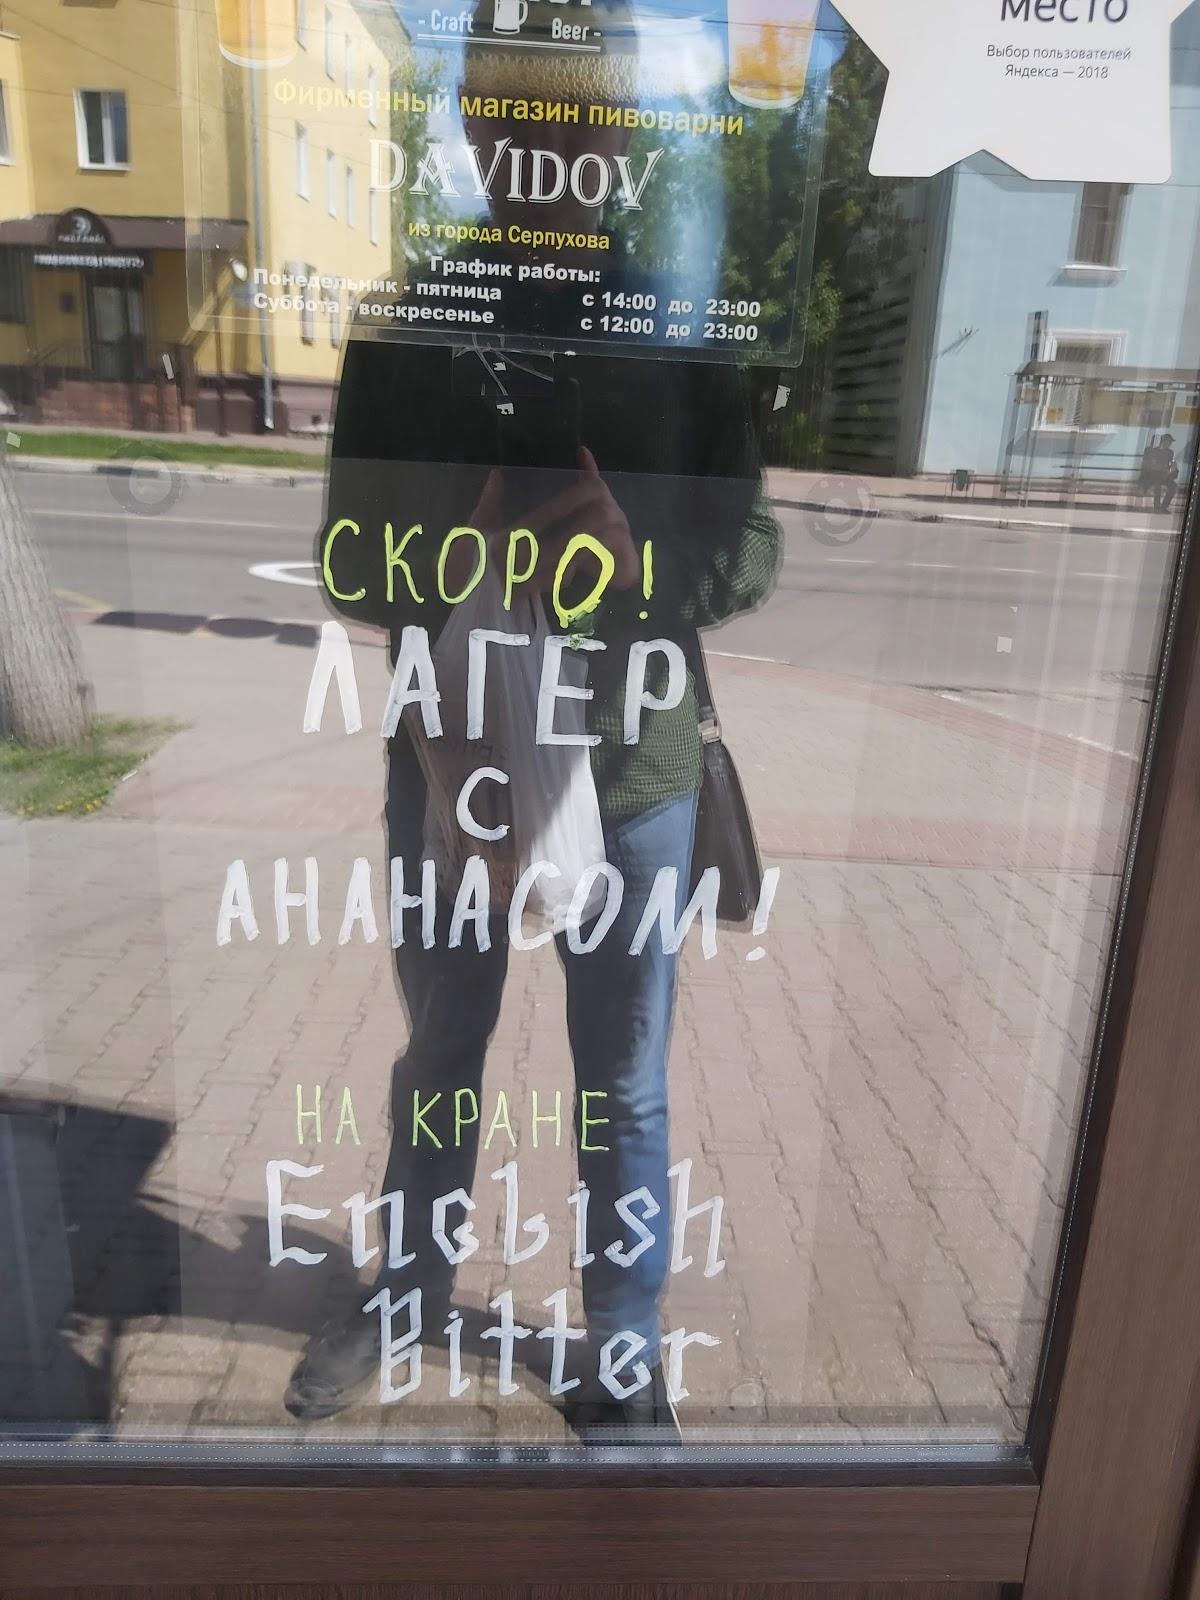 - Craft Beer -
Фирменный магазин пивоварни
DAVIDOV
из города Серпухова
График работы:
Понедельник - пятница с 14:00 до 23:00
Суббота - воскресенье с 12:00 до 23:00
место
Выбор пользователей
Яндекса — 2018
СКОРО!
ЛАГЕР
С
АНАНАСОМ!
НА КРАНЕ
English
Bitter